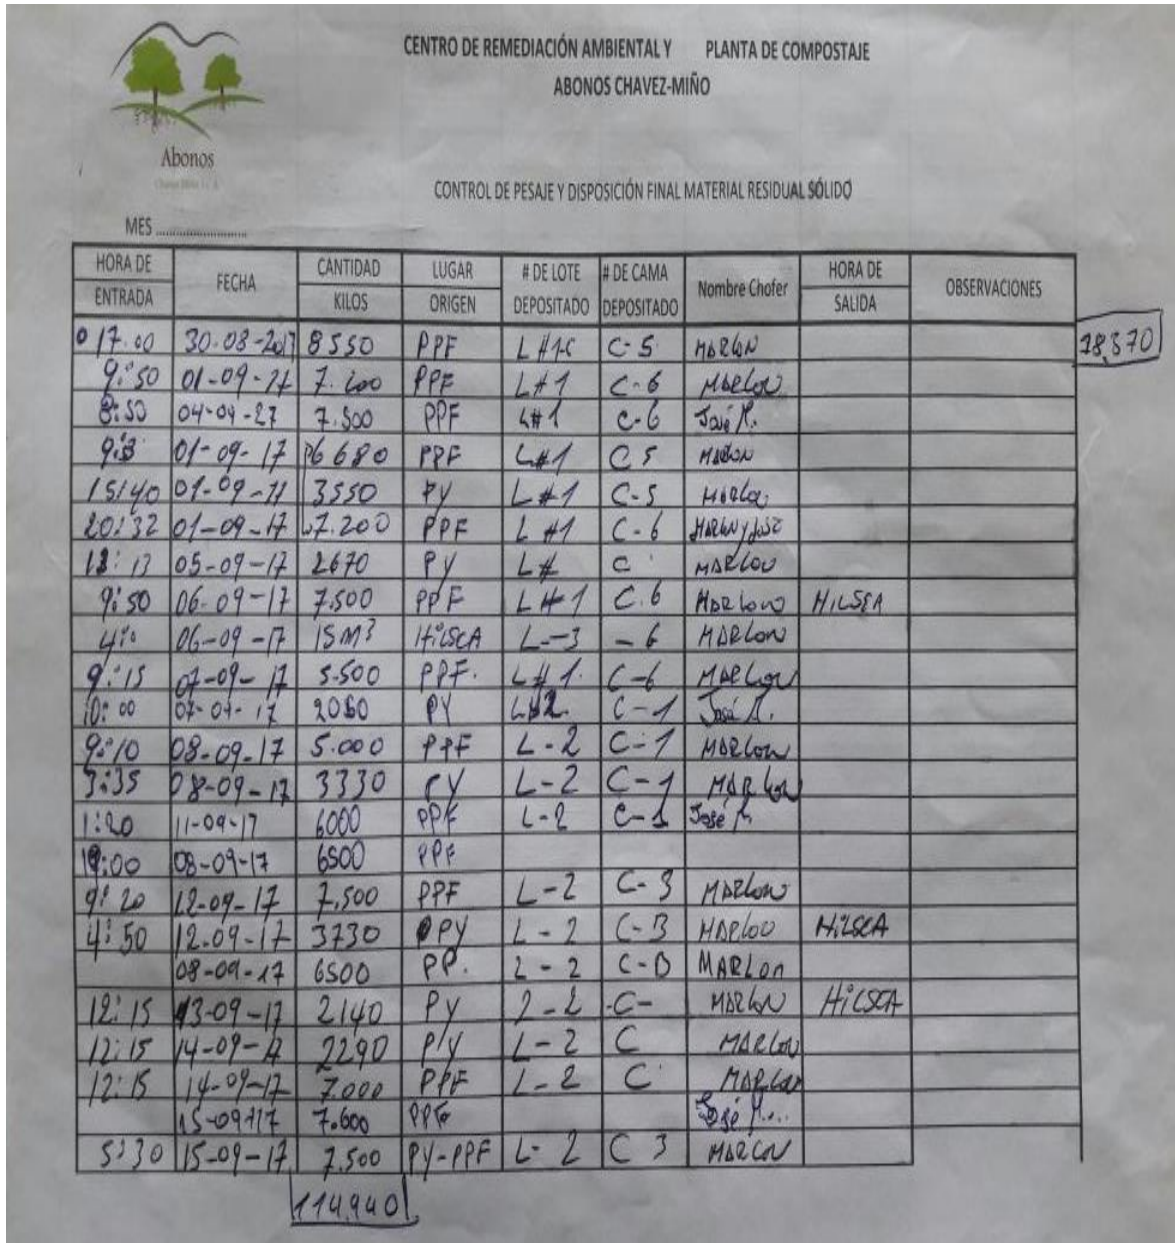 CENTRO DE REMEDIACIÓN AMBIENTAL Y PLANTA DE COMPOSTAJE
ABONOS CHAVEZ-MIÑO
Abonos
CONTROL DE PESAJE Y DISPOSICIÓN FINAL MATERIAL RESIDUAL SÓLIDO
MES ..........................
HORA DE ENTRADA FECHA CANTIDAD KILOS LUGAR ORIGEN # DE LOTE DEPOSITADO # DE CAMA DEPOSITADO Nombre Chofer HORA DE SALIDA OBSERVACIONES
17:00 30-08-2017 8550 PPF C-5 MARLON
9:50 01-09-17 PPF L#1 C-6 MARLON
8:50 7.500 PPF L#1 C-6 José
01-09-17 6680 PPF L#1 C5 MARLON
15:40 01-09- 3550 PY L#1 C-5 MARLON
20:32 01-09-17 7.200 PPF L#1 C-6
05-09-17 2670 PY L# C MARLON
9:50 06-09-17 7.500 PPF L#1 C.6 MARLON HILSEA
06-09-17 15 M³ HILSEA L--3 -6 MARLON
9:15 07-09-17 5.500 PPF. L#1. C-6 MARLON
10:00 PY C-1 José
9:10 08-09-17 5.000 PPF L-2 C-1 MARLON
3:35 08-09-17 3330 PY L-2 C-1 MARLON
1:20 11-09-17 6000 PPF L-2 C-1 José
08-09-17 6500 PPF
9:20 12-09-17 7.500 PPF L-2 C-3 MARLON
4:50 12.09-17 3730 PY L-2 MARLON HILSEA
08-09-17 6500 PP. L-2 MARLON
12:15 13-09-17 2140 PY -C- MARLON HILSEA
12:15 14-09-17 2290 L-2 C MARLON
12:15 14-09-17 7.000 PPF L-2 C MARLON
15-09-17 7.600 José
5:30 15-09-17 7.500 PY-PPF L-2 C 3 MARLON
114.940